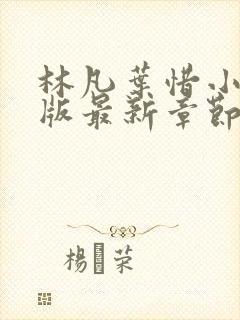 林凡葉惜小
版最新章節
楊荣